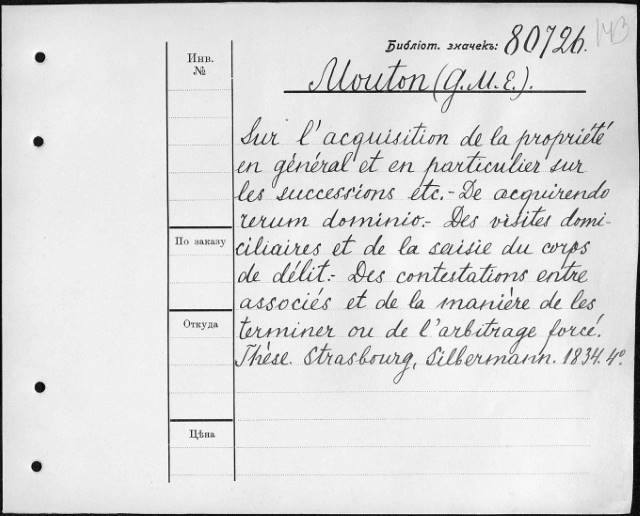 143
Библіот. значекъ: 80726.
Инв. №
Mouton (G.M.E.).
Sur l'acquisition de la propriété
en général et en particulier sur
les successions etc.- De acquirendo
rerum dominio.- Des visites domi-
По заказу
ciliaires et de la saisie du corps
de délit.- Des contestations entre
associés et de la manière de les
Откуда
terminer ou de l'arbitrage forcé.
Thèse. Strasbourg, Silbermann. 1834. 4º.
Цѣна